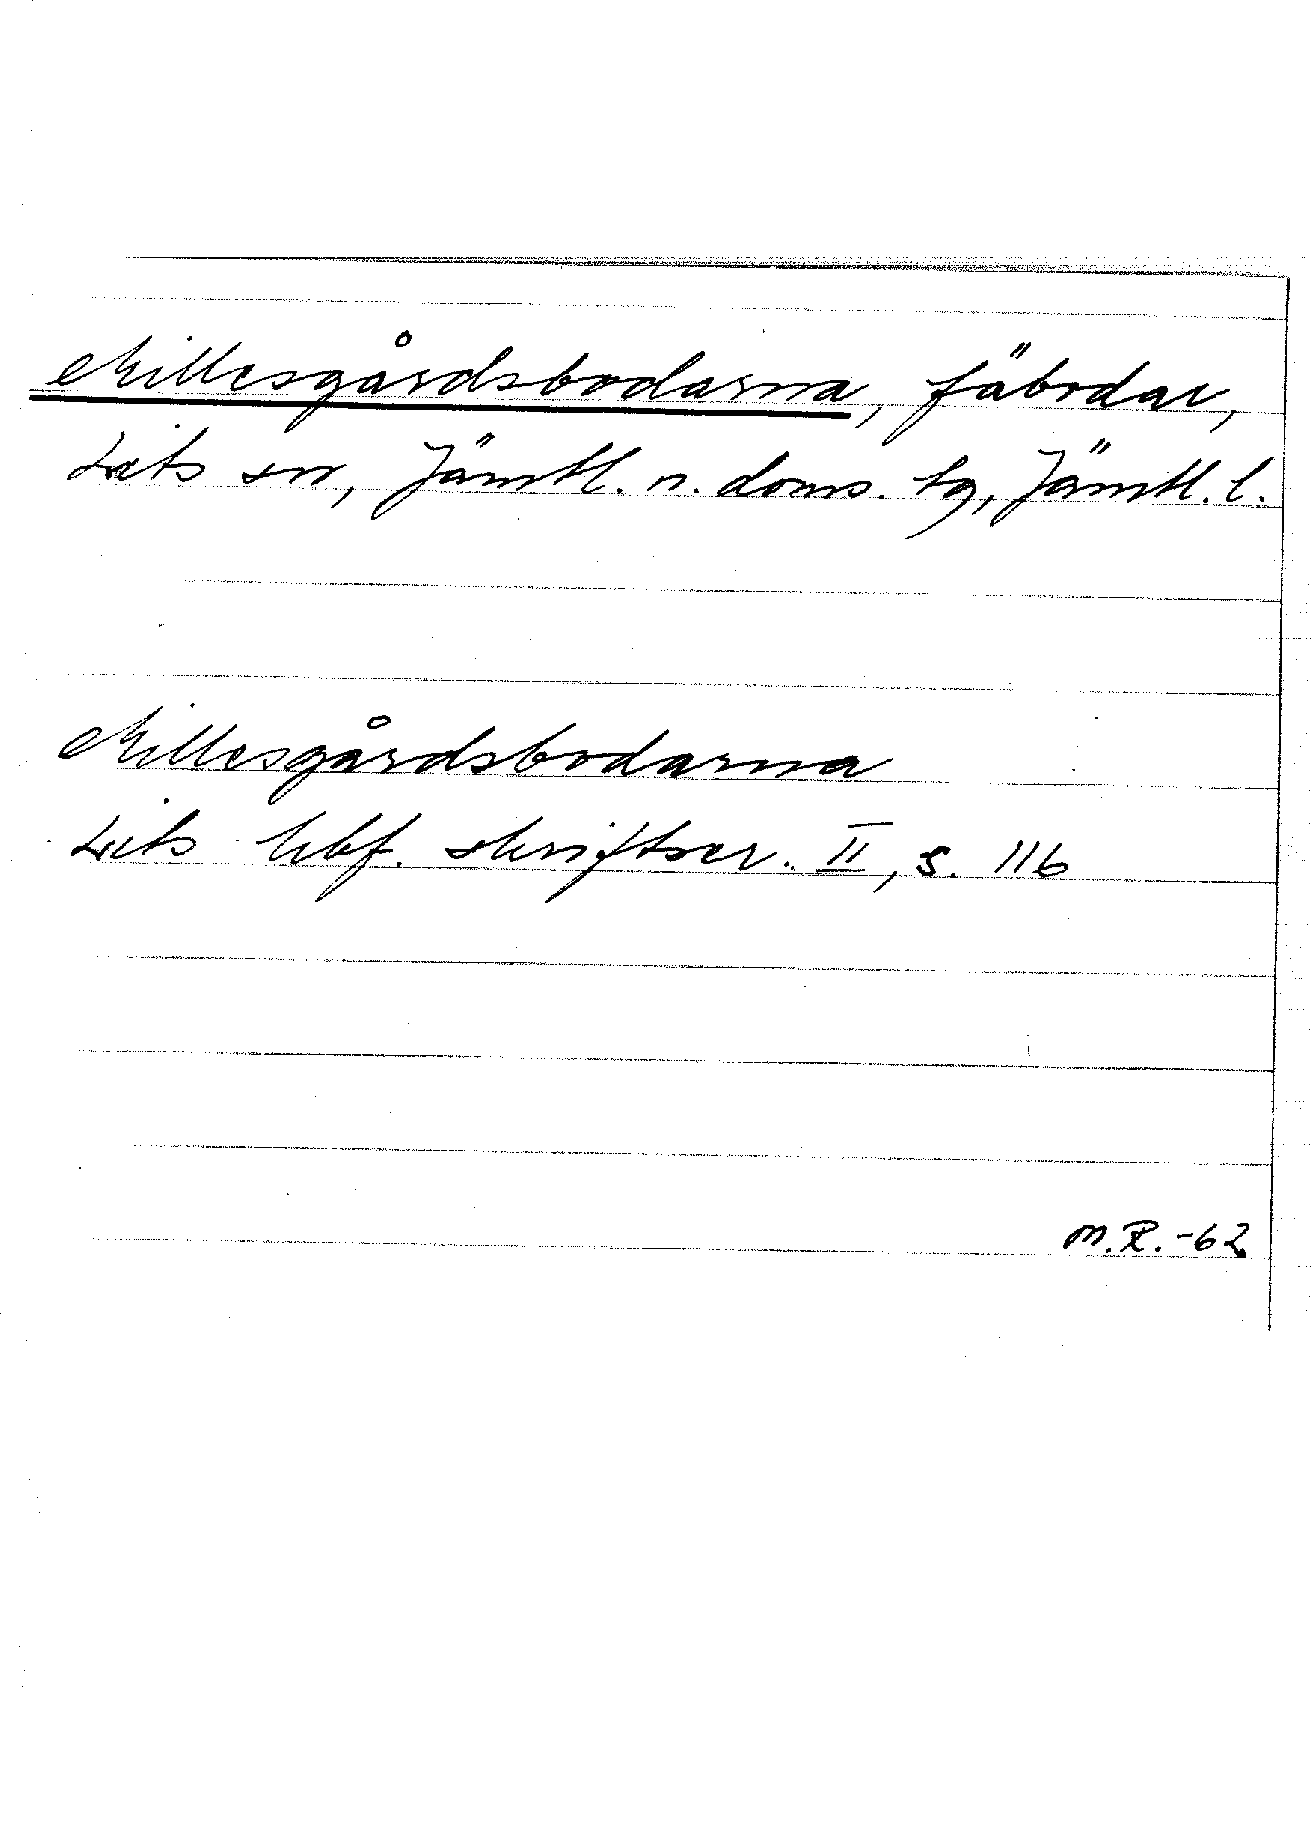 Nillesgårdsbodarna, fäbodar,
Lits sn, Jämtl. n. doms. tg, Jämtl. l.
Nillesgårdsbodarna
Lits hbf. skriftser. II, s. 116
M.R.-62